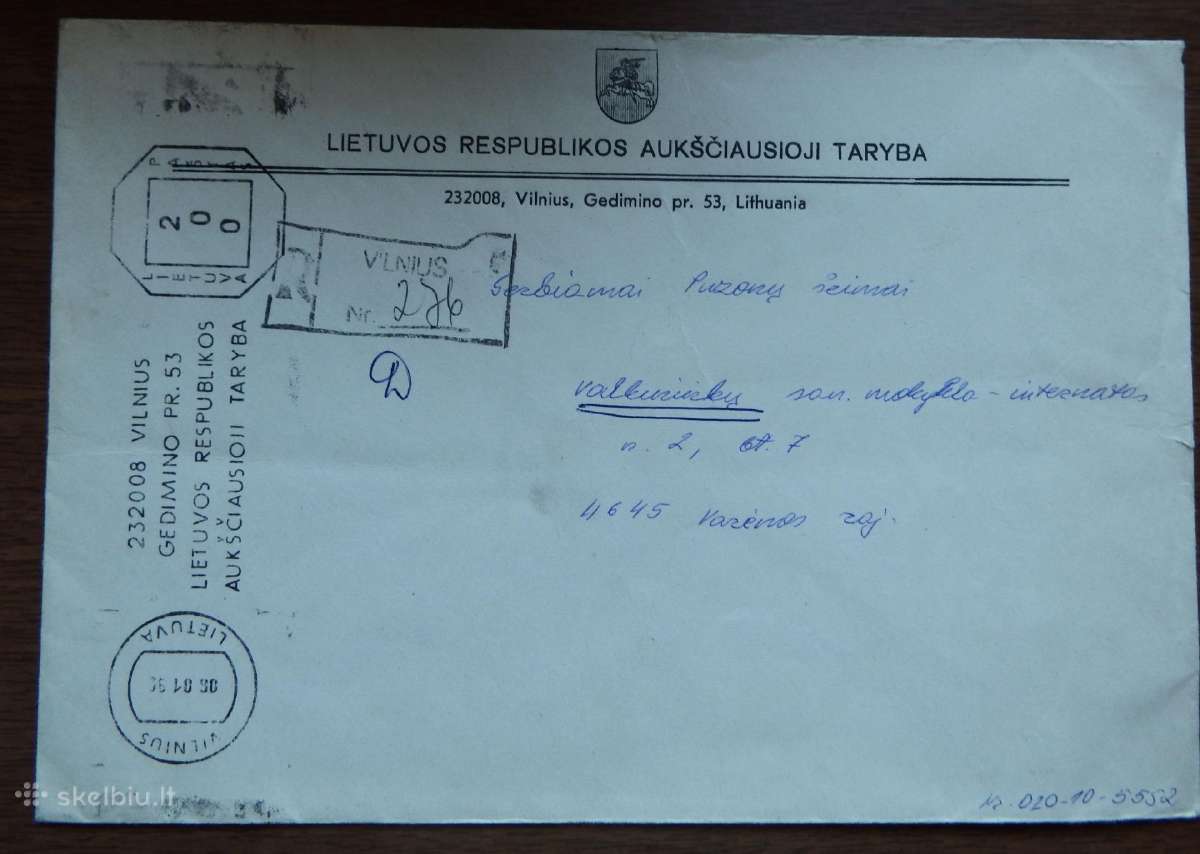 LIETUVOS RESPUBLIKOS AUKŠČIAUSIOJI TARYBA
232008, Vilnius, Gedimino pr. 53, Lithuania
PAŠTAS
200
LIETUVA
R VILNIUS
Nr. 276
Gerbiamai Puzonų šeimai
D
Valkininkų san. mokykla-internatas
n. 2, bt. 7
4645 Varėnos raj.
232008 VILNIUS
GEDIMINO PR. 53
LIETUVOS RESPUBLIKOS
AUKŠČIAUSIOJI TARYBA
LIETUVA
06 01 9
VILNIUS
Nr. 020-10-5552
skelbiu.lt